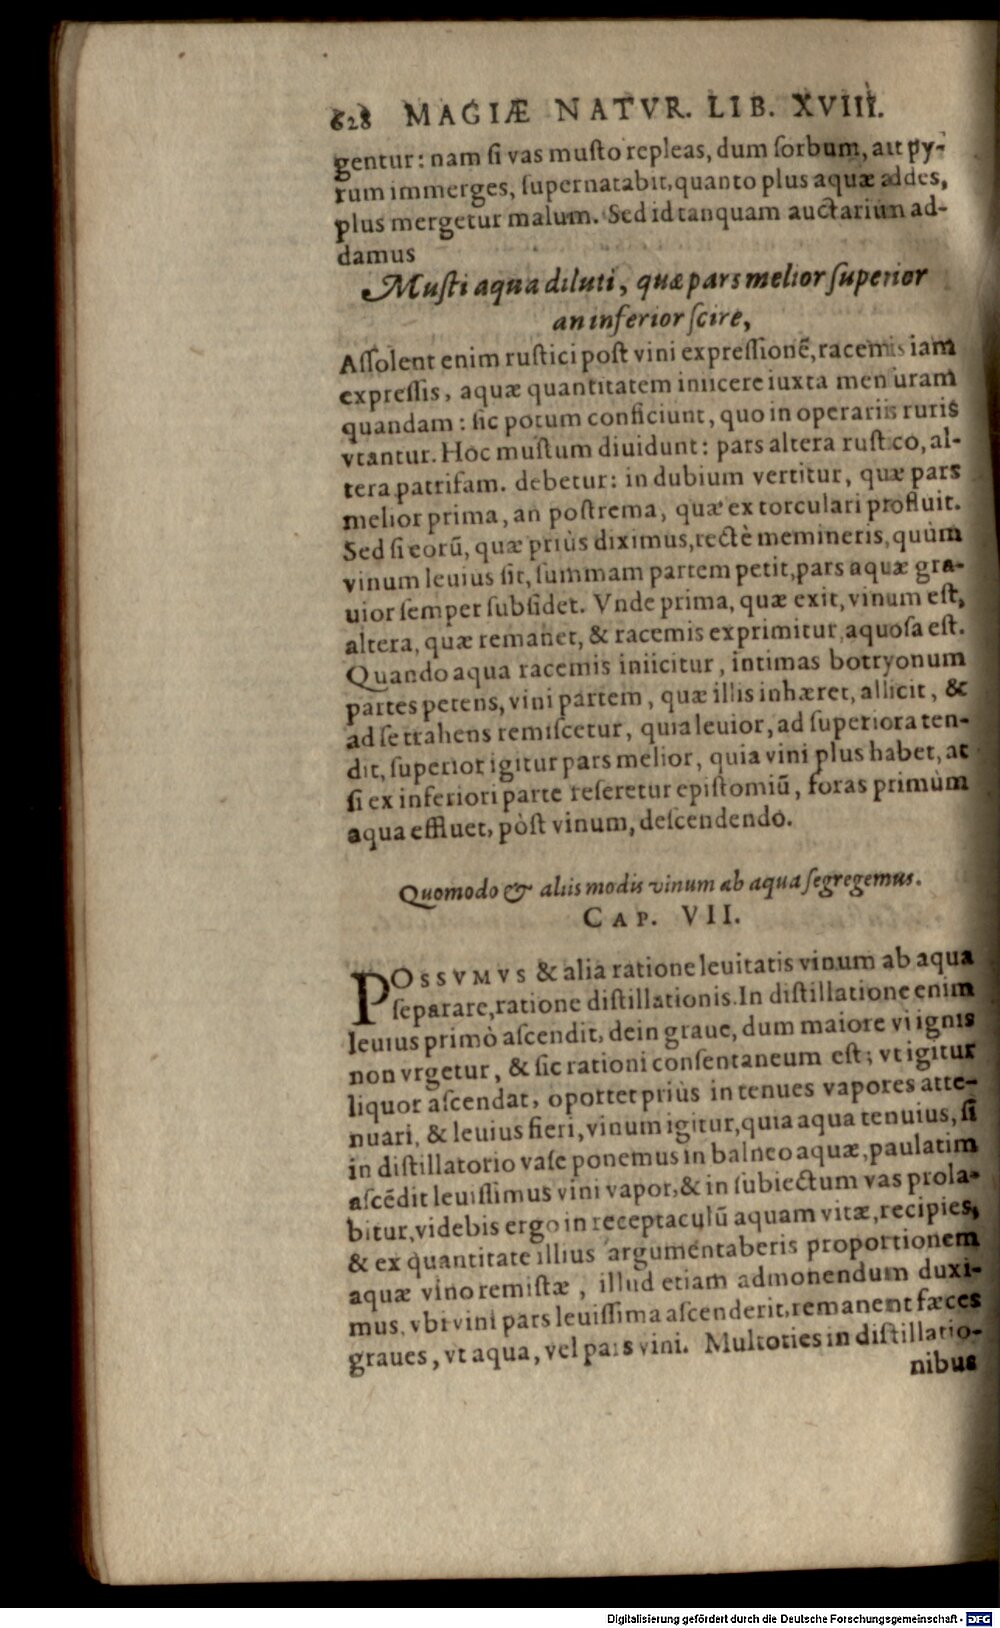 628 MAGIÆ NATVR. LIB. XVIII.
gentur: nam ſi vas muſto repleas, dum ſorbum, aut py-
rum immerges, ſupernatabit, quanto plus aquæ addes,
plus mergetur malum. Sed id tanquam auctarium ad-
damus
Muſti aqua diluti, quæ pars melior ſuperior
an inferior ſcire,
Aſſolent enim ruſtici poſt vini expreſſionē, racemis iam
expreſſis, aquæ quantitatem iniicere iuxta menſuram
quandam: ſic potum conficiunt, quo in operariis ruris
vtantur. Hoc muſtum diuidunt: pars altera ruſtico, al-
tera patrifam. debetur: in dubium vertitur, quæ pars
melior prima, an poſtrema, quæ ex torculari profluit.
Sed ſi eorū, quæ priùs diximus, rectè memineris, quùm
vinum leuius ſit, ſummam partem petit, pars aquæ gra-
uior ſemper ſubſidet. Vnde prima, quæ exit, vinum eſt,
altera, quæ remanet, & racemis exprimitur, aquoſa eſt.
Quando aqua racemis iniicitur, intimas botryonum
partes petens, vini partem, quæ illis inhæret, allicit, &
ad ſe trahens remiſcetur, quia leuior, ad ſuperiora ten-
dit, ſuperior igitur pars melior, quia vini plus habet, at
ſi ex inferiori parte reſeretur epiſtomiū, foras primùm
aqua effluet, pòſt vinum, deſcendendo.
Quomodo & aliis modis vinum ab aqua ſegregemus.
CAP. VII.
POSSVMVS & alia ratione leuitatis vinum ab aqua
ſeparare, ratione diſtillationis. In diſtillatione enim
leuius primò aſcendit, dein graue, dum maiore vi ignis
non vrgetur, & ſic rationi conſentaneum eſt; vt igitur
liquor aſcendat, oportet priùs in tenues vapores atte-
nuari, & leuius fieri, vinum igitur, quia aqua tenuius, ſi
in diſtillatorio vaſe ponemus in balneo aquæ, paulatim
aſcēdit leuiſſimus vini vapor, & in ſubiectum vas prola-
bitur, videbis ergo in receptaculū aquam vitæ, recipies,
& ex quantitate illius argumentaberis proportionem
aquæ vino remiſtæ, illud etiam admonendum duxi-
mus, vbi vini pars leuiſſima aſcenderit, remanent fæces
graues, vt aqua, vel pars vini. Multoties in diſtillatio-
nibus
Digitalisierung gefördert durch die Deutsche Forschungsgemeinschaft - DFG